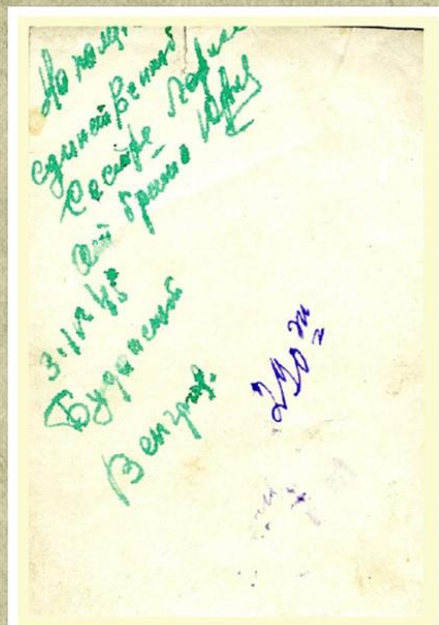 На память
единственной
сестре Ларисе
от брата Юры
3.IV 45
Будапешт
Венгрия.